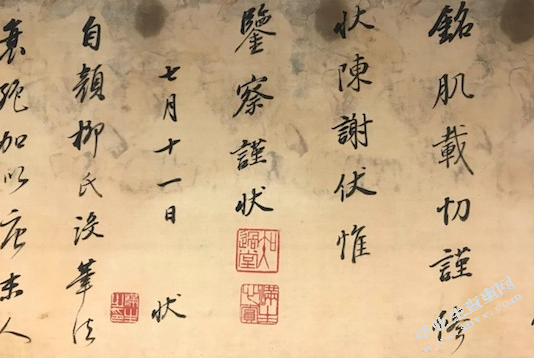 銘肌載切謹修
状陳謝伏惟
鑒察謹状
七月十一日
状
自顏柳氏没筆法
衰絶加以唐末人